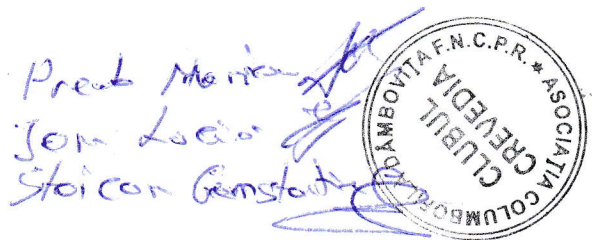 Preda Marian
Ion Lucian
Stoican Constantin
F.N.C.P.R. * ASOCIATIA COLUMBOFILA DAMBOVITA
CLUBUL
CREVEDIA